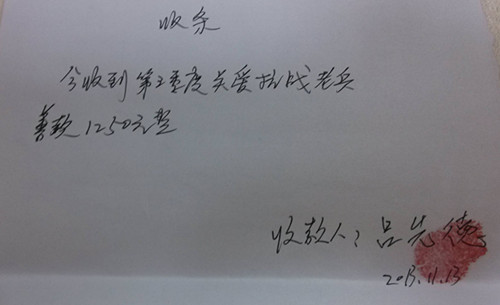 收条
今收到第三季度关爱抗战老兵
善款1250元整
收款人：吕先德
2013.11.13